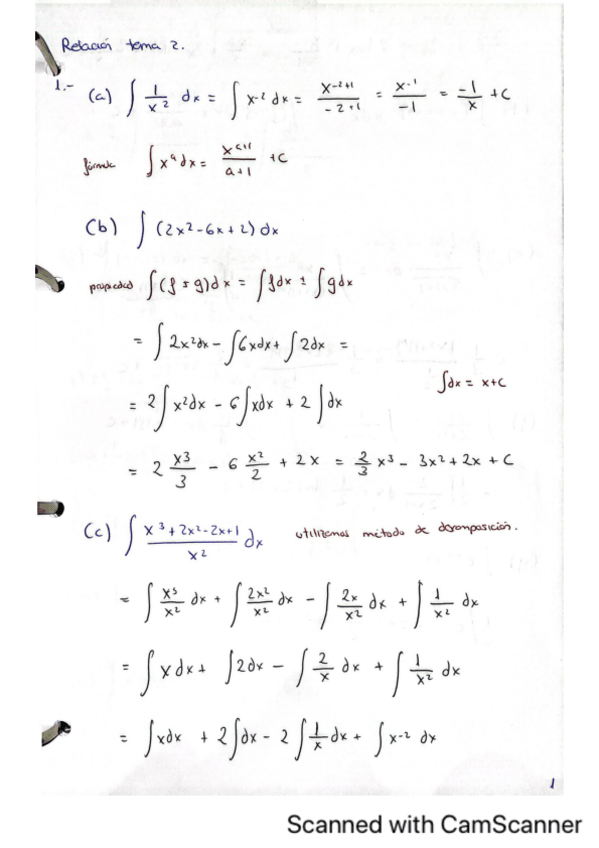 Relación tema 2.
1.- (a) ∫ 1/x² dx = ∫ x⁻² dx = x⁻²⁺¹/-2+1 = x⁻¹/-1 = -1/x + C
fórmula ∫ xᵃ dx = xᵃ⁺¹/a+1 + C
(b) ∫ (2x²-6x+2) dx
propiedad ∫ (f ± g) dx = ∫ f dx ± ∫ g dx
= ∫ 2x² dx - ∫ 6x dx + ∫ 2dx =
∫ dx = x+C
= 2 ∫ x² dx - 6 ∫ x dx + 2 ∫ dx
= 2 x³/3 - 6 x²/2 + 2x = 2/3 x³ - 3x² + 2x + C
(c) ∫ x³+2x²-2x+1/x² dx utilizamos método de descomposición.
= ∫ x³/x² dx + ∫ 2x²/x² dx - ∫ 2x/x² dx + ∫ 1/x² dx
= ∫ x dx + ∫ 2dx - ∫ 2/x dx + ∫ 1/x² dx
= ∫ x dx + 2 ∫ dx - 2 ∫ 1/x dx + ∫ x⁻² dx
1
Scanned with CamScanner